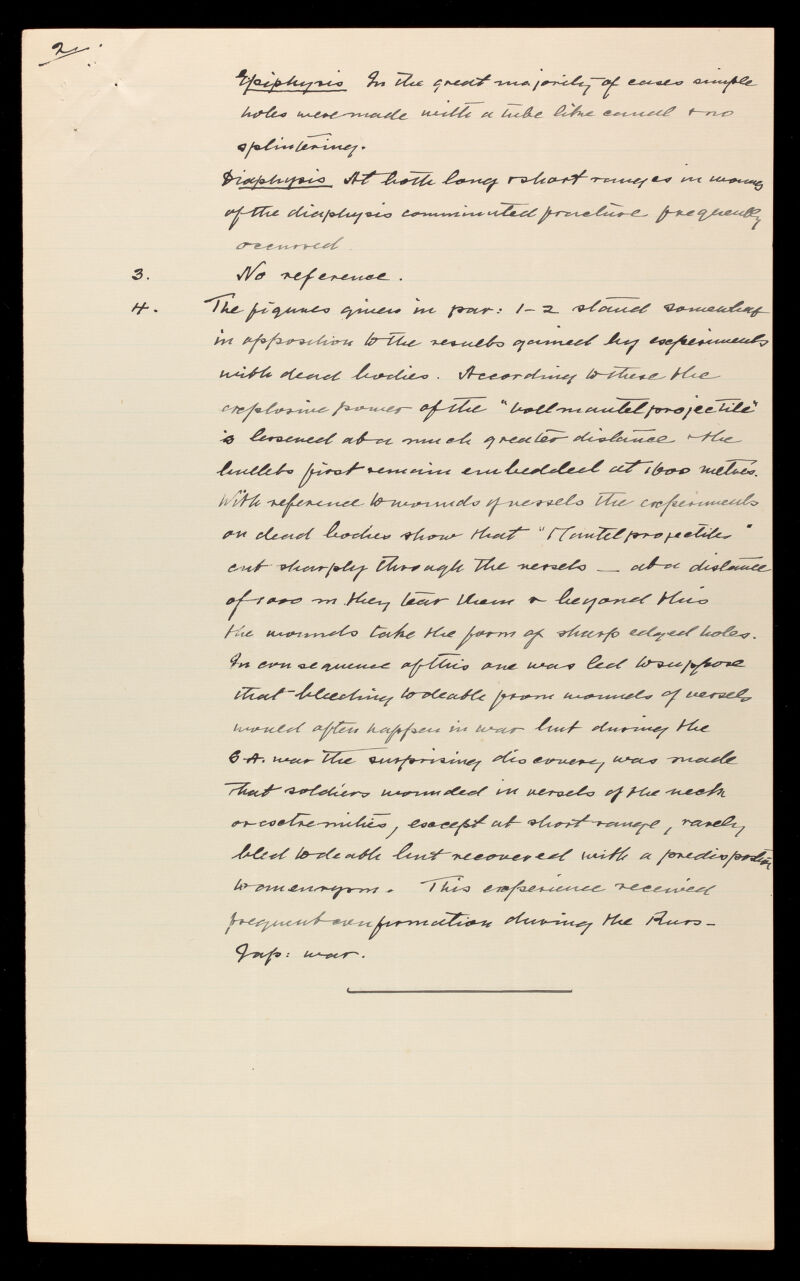 2.
Epiphysis In the great majority of cases simple
holes were made with a tube like canal & no
splintering.
Diaphysis At both long & short ranges in wounds
of the diaphysis comminuted fracture frequently
occurred.
3. No reference.
4. The figures given in par: 1-2 stand somewhat
in opposition to the results gained by experiments
with dead bodies. According to these the
explosive power of the "vollmantelprojectile"
is lessened at a much greater distance & the
bullets first remain embedded at 1600 metres.
With reference to wounds of vessels the experiments
on dead bodies show that "Mantelprojectiles"
cut sharply through the vessels — at a distance
of 1000 m they tear them & beyond this
the wounds take the form of sharp edged holes.
In consequence of this one was led to suppose
that bleeding to death from wounds of vessels
would often happen in war but during the
S.A. war the surprising discovery was made
that soldiers wounded in vessels of the neck
or extremities, except at short range, rarely
bled to death but recovered with a predisposition
to aneurysm. This experience received
frequent confirmation during the Russ-
Jap: war.